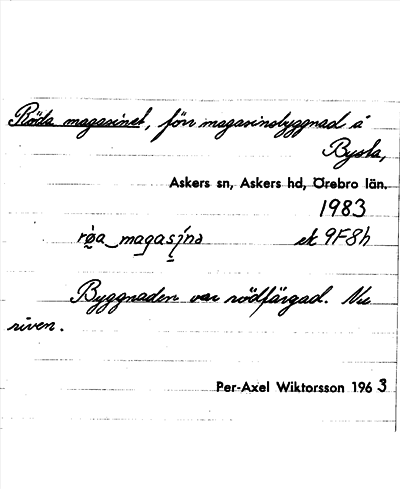 Röda magasinet, förr magasinsbyggnad å
Bysta,
Askers sn, Askers hd, Örebro län.
1983
rø̀a magasínə ek 9F8h
Byggnaden var rödfärgad. Nu
riven.
Per-Axel Wiktorsson 1963